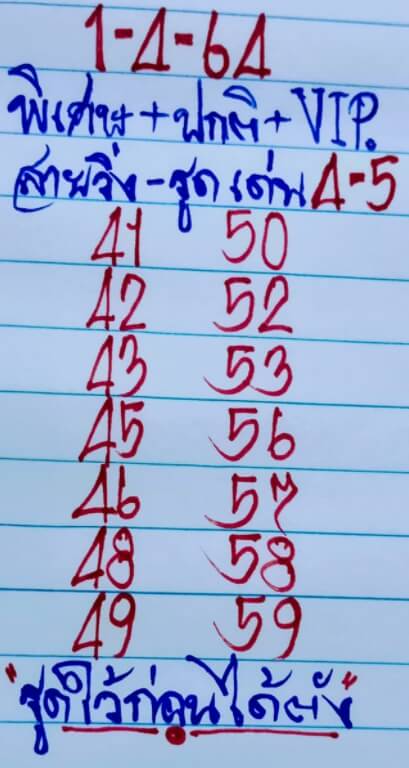 1-4-64
พิเศษ+ปกติ+VIP.
สายวิ่ง-รูดเด่น 4-5
41 50
42 52
43 53
45 56
46 57
48 58
49 59
"รูดไว้ก่อนได้ตัง"